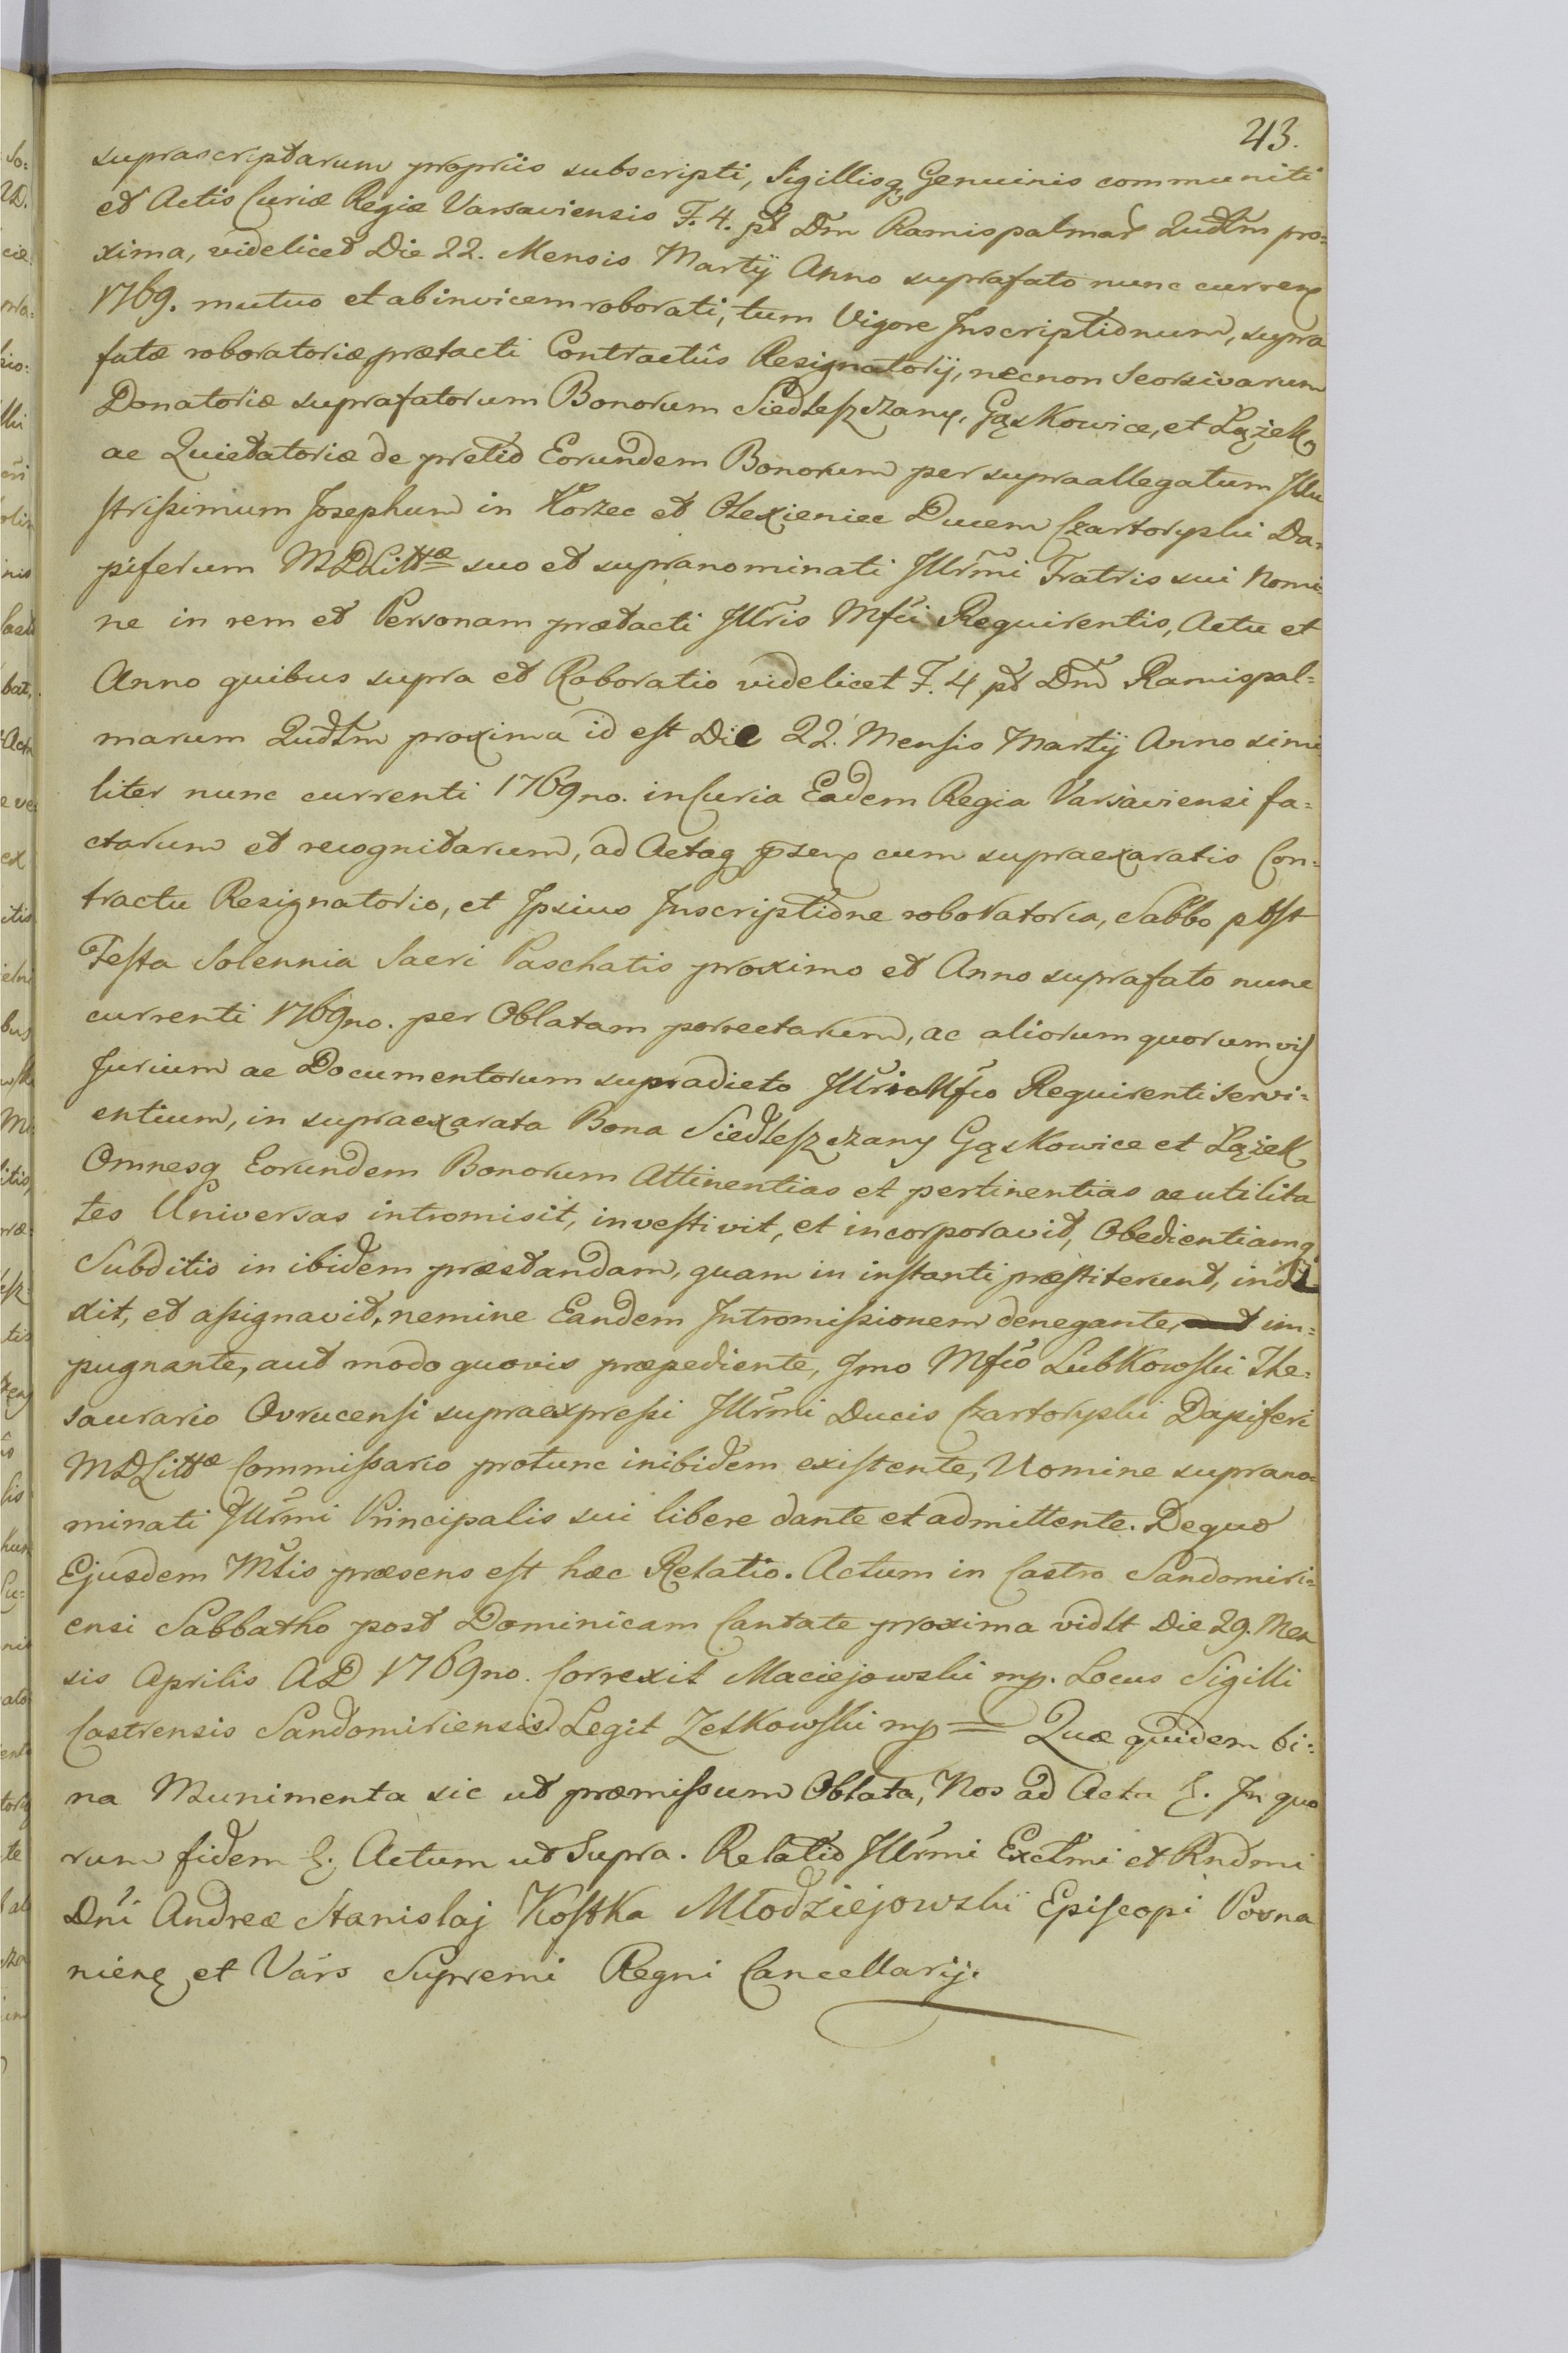 43.
suprascriptarum propriis subscripti, Sigillisq Genuinis communiti
et Actis Curiæ Regiæ Varsaviensis F. 4. pt Dm Ramispalmar Qudtm pro=
xima, videlicet Die 22. Mensis Martÿ Anno suprafato nunc curren
1769. mutuo et ab invicem roborati, tum Vigore Inscriptionum, supra
fatæ roboratoriæ prætacti Contractûs Resignatorÿ, necnon Seorsivarum
Donatoriæ suprafatorum Bonorum Siedleszczany, Gąskowice, et Łążek,
ac Quietatoriæ de pretio Eorundem Bonorum per supraallegatum Illu
strissimum Josephum in Korzec et Olexieniec Ducem Czartoryski Da=
piferum MDLittæ suo et supranominati Illrmi Fratris sui Nomi=
ne in rem et Personam prætacti Illris Mfci Requirentis, Actu et
Anno quibus supra et Roboratio videlicet F. 4 pt Dm Ramispal=
marum Qudtm proxima id est Die 22. Mensis Martÿ Anno simi
liter nunc currenti 1769no. in Curia Eadem Regia Varsaviensi fa=
ctarum et recognitarum, ad Actaq psen cum supraexaratis Con=
tractu Resignatorio, et Ipsius Inscriptione roboratoria, Sabbo post
Festa Solennia Sacri Paschatis proximo et Anno suprafato nunc
currenti 1769no. per Oblatam porrectarum, ac aliorum quorumvis
Jurium ac Documentorum supradicto Illri Mfco Requirenti servi=
entium, in supraexarata Bona Siedleszczany Gąskowice et Łążek,
Omnesq Eorundem Bonorum Attinentias et pertinentias ac utilita
tes Universas intromisit, investivit, et incorporavit, Obedientiamq
Subditis in ibidem præstandam, quam in instanti præstiterunt, indi
xit, et assignavit, nemine Eandem Intromissionem denegante, im=
pugnante, aut modo quovis præpediente, Imo Mfco Lubkowski The=
saurario Ovrucensi supraexpressi Illrmi Ducis Czartoryski Dapiferi
MDLittæ Commissario protunc inibidem existente, Nomine suprano=
minati Illrmi Principalis sui libere dante et admittente. De quo
Ejusdem Mtis præsens est hæc Relatio. Actum in Castro Sandomiri=
ensi Sabbatho post Dominicam Cantate proxima vidlt Die 29. Men
sis Aprilis AD 1769no. Correxit Maciejowski mp. Locus Sigilli
Castrensis Sandomiriensis. Legit Zelkowski mp = Quæ quidem bi=
na Munimenta sic ut præmissum Oblata, Nos ad Acta &. In quo
rum fidem &. Actum ut Supra. Relatio Illrmi Excllmi et Rndmi
Dni Andreæ Stanislaj Kostka Młodziejowski Episcopi Posna
niens et Vars Supremi Regni Cancellarij.